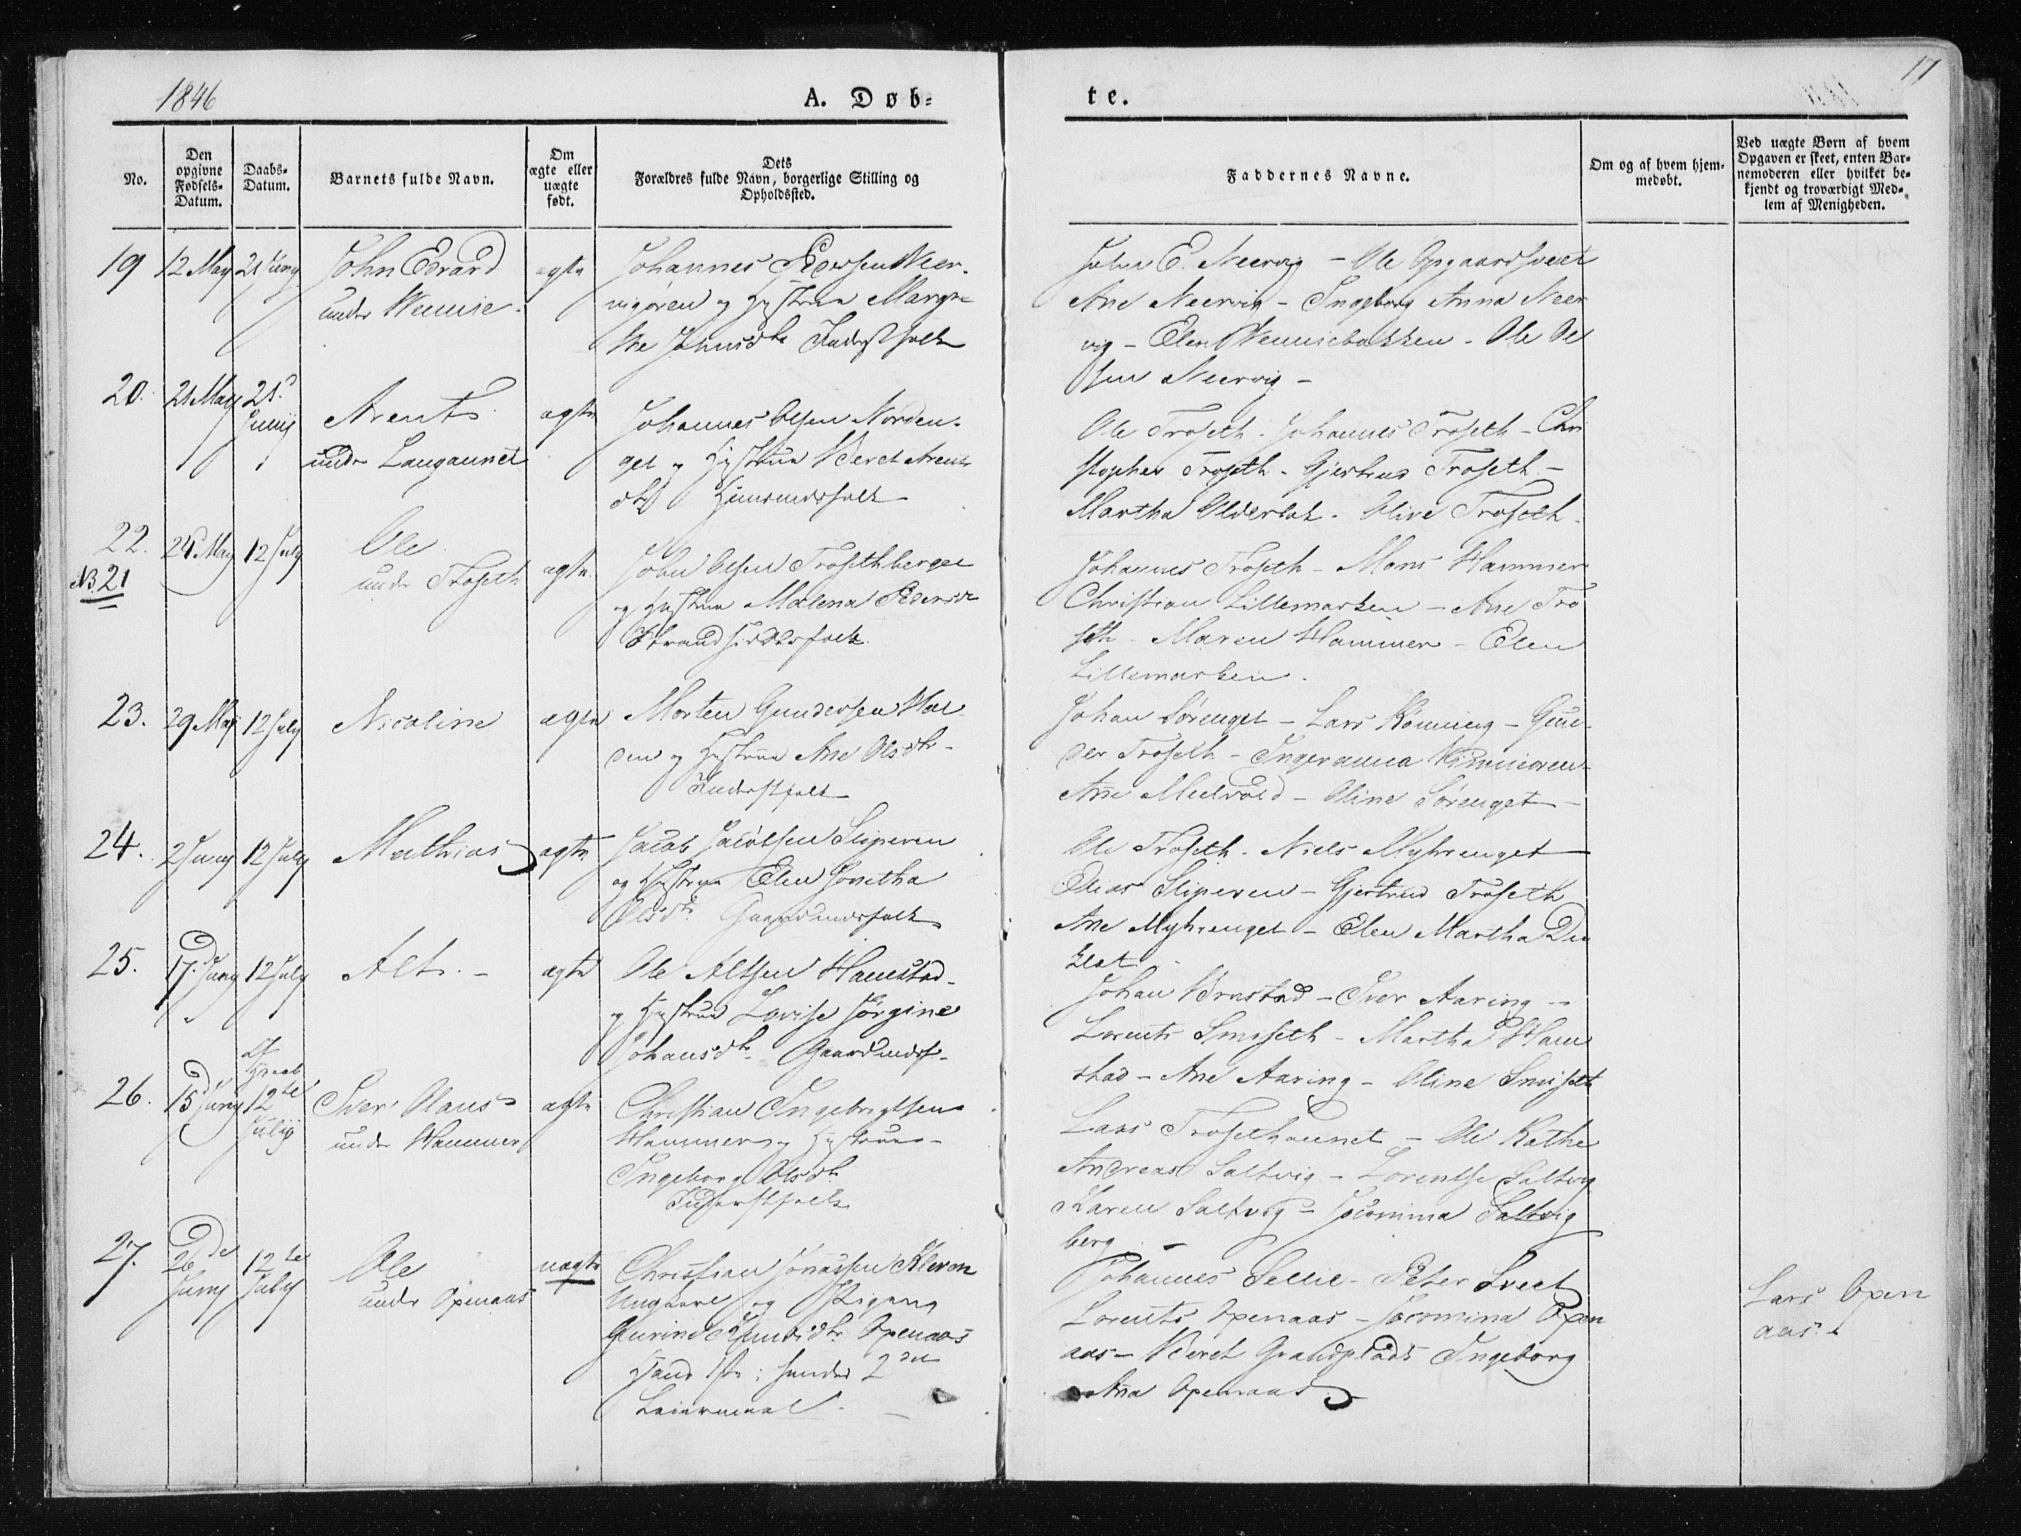 1846
A. Døb-
te.
17
No.
Den opgivne Fødsels-Datum.
Daabs-Datum.
Barnets fulde Navn.
Om ægte eller uægte født.
Dets Forældres fulde Navn, borgerlige Stilling og Opholdssted.
Faddernes Navne.
Om og af hvem hjem-
medøbt.
Ved uægte Børn af hvem
Opgaven er skeet, enten Bar-
nemoderen eller hvilket be-
kjendt og troværdigt Med-
lem af Menigheden.
19 12 May 21 Juny John Edvard
under
ægte
Johannes Pedersen Neer-
vigøren og Hustrue Margre-
the Inderstfolk
John E. Neervig - Ole Opgaardsveet
Ane Neervig - Ingeborg Anna Neer
vig - Elen - Ole Ol
sen Neervig -
20. 21 May 21
Juny
Arent
under Langaunet
ægte
Johannes Olsen Norden-
get og Hustrue Beret Arents
dtr Huusmandsfolk
Ole Troseth - Johannes Troseth - Chri
stopher Troseth - Troseth -
Martha - Olive Troseth -
22. 24 May 12 July Ole
NB 21
under Troseth
ægte
John Olsen Trosethberget
og Hustrue Malena Pedersdr
Strandsidderfolk
Johannes Troseth - Mons Hammer
Christian Lillemarken - Ane Tro
seth - Maren Hammer - Elen
Lillemarken.
23. 29 May 12 July Nicoline ægte
Morten Gundersen Hal
den og Hustrue Ane Olsdtr -
Inderstfolk
Johan Sørenget - Lars Rønning - Gun-
der Troseth - Ingeranna
Ane - Oline Sørenget -
24. 2 Juny 12 July Mathias ægte
Jacob Jacobsen Sliperen
og Hustrue Elen Jonetha
Olsdtr Gaardmandsfolk
Ole Troseth - Niels Myhrenget
Elias Sliperen - Gjertrud Troseth
Ane Myhrenget - Elen Martha
25. 17. Juny 12 July Alt. - ægte
Ole Altsen Hamstad
og Hustrue Lovise Jørgine
Johansdtr Gaardmdsf-
Johan - Iver Aaring -
Lorents Smiseth - Martha Ham
stad - Ane Aaring - Oline Smiseth
26. 15 Juny 12te
July
Iver Olaus
under Hammer
ægte
Christian Ingebrigtsen
Hammer og Hustrue -
Ingeborg Olsdtr
Inderstfolk
Lars Trosethaunet - Ole Kathe
Andreas Saltvig - Lorentse Saltvig
Karen Saltvig - Jocomina Saltvig
berg -
27. 26de
Juny
12te
July
Ole
under Openaas
uægte
Christian Jonassen Kleven
Ungkarl og Pigen
Gurine Openaas
Hans 1ste; hendes 2det
Leiermaal -
Johannes Sellie - Peter Sveet
Lorents Openaas - Jocomina Open
aas - Beret Grandplads Ingeborg
Ana Openaas
Lars Open
aas.